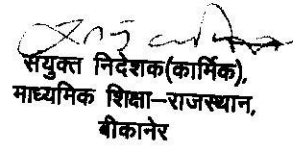 संयुक्त निदेशक(कार्मिक),
माध्यमिक शिक्षा–राजस्थान,
बीकानेर